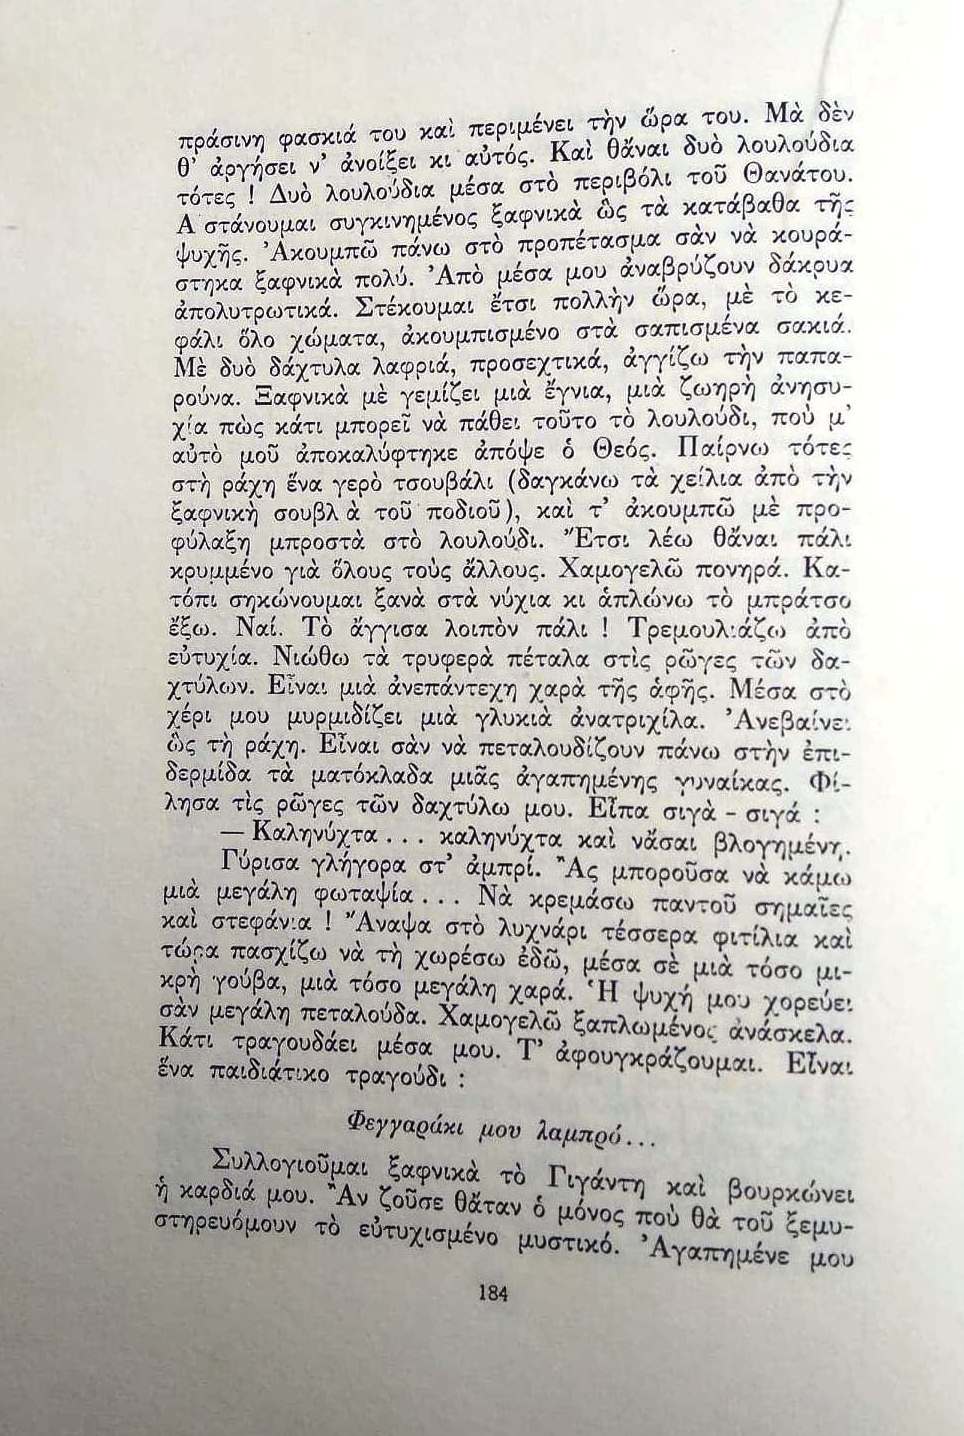 πράσινη φασκιά του καὶ περιμένει τὴν ὥρα του. Μὰ δὲν
θ’ ἀργήσει ν’ ἀνοίξει κι αὐτός. Καὶ θἄναι δυὸ λουλούδια
τότες ! Δυὸ λουλούδια μέσα στὸ περιβόλι τοῦ Θανάτου.
Α στάνουμαι συγκινημένος ξαφνικὰ ὣς τὰ κατάβαθα τῆς
ψυχῆς. Ἀκουμπῶ πάνω στὸ προπέτασμα σὰν νὰ κουρά-
στηκα ξαφνικὰ πολύ. Ἀπὸ μέσα μου ἀναβρύζουν δάκρυα
ἀπολυτρωτικά. Στέκουμαι ἔτσι πολλὴν ὥρα, μὲ τὸ κε-
φάλι ὅλο χώματα, ἀκουμπισμένο στὰ σαπισμένα σακιά.
Μὲ δυὸ δάχτυλα λαφριά, προσεχτικά, ἀγγίζω τὴν παπα-
ρούνα. Ξαφνικὰ μὲ γεμίζει μιὰ ἔγνια, μιὰ ζωηρὴ ἀνησυ-
χία πὼς κάτι μπορεῖ νὰ πάθει τοῦτο τὸ λουλούδι, ποὺ μ’
αὐτὸ μοῦ ἀποκαλύφτηκε ἀπόψε ὁ Θεός. Παίρνω τότες
στὴ ράχη ἕνα γερὸ τσουβάλι (δαγκάνω τὰ χείλια ἀπὸ τὴν
ξαφνικὴ σουβλ ὰ τοῦ ποδιοῦ), καὶ τ’ ἀκουμπῶ μὲ προ-
φύλαξη μπροστὰ στὸ λουλούδι. Ἔτσι λέω θἄναι πάλι
κρυμμένο γιὰ ὅλους τοὺς ἄλλους. Χαμογελῶ πονηρά. Κα-
τόπι σηκώνουμαι ξανὰ στὰ νύχια κι ἁπλώνω τὸ μπράτσο
ἔξω. Ναί. Τὸ ἄγγισα λοιπὸν πάλι ! Τρεμουλιάζω ἀπὸ
εὐτυχία. Νιώθω τὰ τρυφερὰ πέταλα στὶς ρῶγες τῶν δα-
χτύλων. Εἶναι μιὰ ἀνεπάντεχη χαρὰ τῆς ἁφῆς. Μέσα στὸ
χέρι μου μυρμιδίζει μιὰ γλυκιὰ ἀνατριχίλα. Ἀνεβαίνει
ὣς τὴ ράχη. Εἶναι σὰν νὰ πεταλουδίζουν πάνω στὴν ἐπι-
δερμίδα τὰ ματόκλαδα μιᾶς ἀγαπημένης γυναίκας. Φί-
λησα τὶς ρῶγες τῶν δαχτύλω μου. Εἶπα σιγὰ - σιγά :
— Καληνύχτα . . . καληνύχτα καὶ νἄσαι βλογημένη.
Γύρισα γλήγορα στ’ ἀμπρί. Ἂς μποροῦσα νὰ κάμω
μιὰ μεγάλη φωταψία . . . Νὰ κρεμάσω παντοῦ σημαῖες
καὶ στεφάνια ! Ἄναψα στὸ λυχνάρι τέσσερα φιτίλια καὶ
τώρα πασχίζω νὰ τὴ χωρέσω ἐδῶ, μέσα σὲ μιὰ τόσο μι-
κρὴ γούβα, μιὰ τόσο μεγάλη χαρά. Ἡ ψυχή μου χορεύει
σὰν μεγάλη πεταλούδα. Χαμογελῶ ξαπλωμένος ἀνάσκελα.
Κάτι τραγουδάει μέσα μου. Τ’ ἀφουγκράζουμαι. Εἶναι
ἕνα παιδιάτικο τραγούδι :
Φεγγαράκι μου λαμπρό...
Συλλογιοῦμαι ξαφνικὰ τὸ Γιγάντη καὶ βουρκώνει
ἡ καρδιά μου. Ἂν ζοῦσε θἄταν ὁ μόνος ποὺ θὰ τοῦ ξεμυ-
στηρευόμουν τὸ εὐτυχισμένο μυστικό. Ἀγαπημένε μου
184